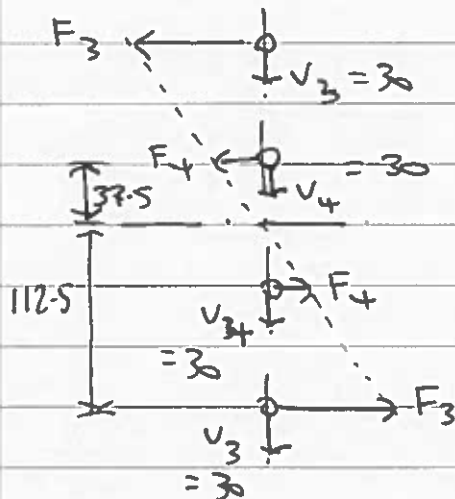 F3
V3 = 30
F4
= 30
37.5
V4
112.5
F4
V34
= 30
F3
V3
= 30